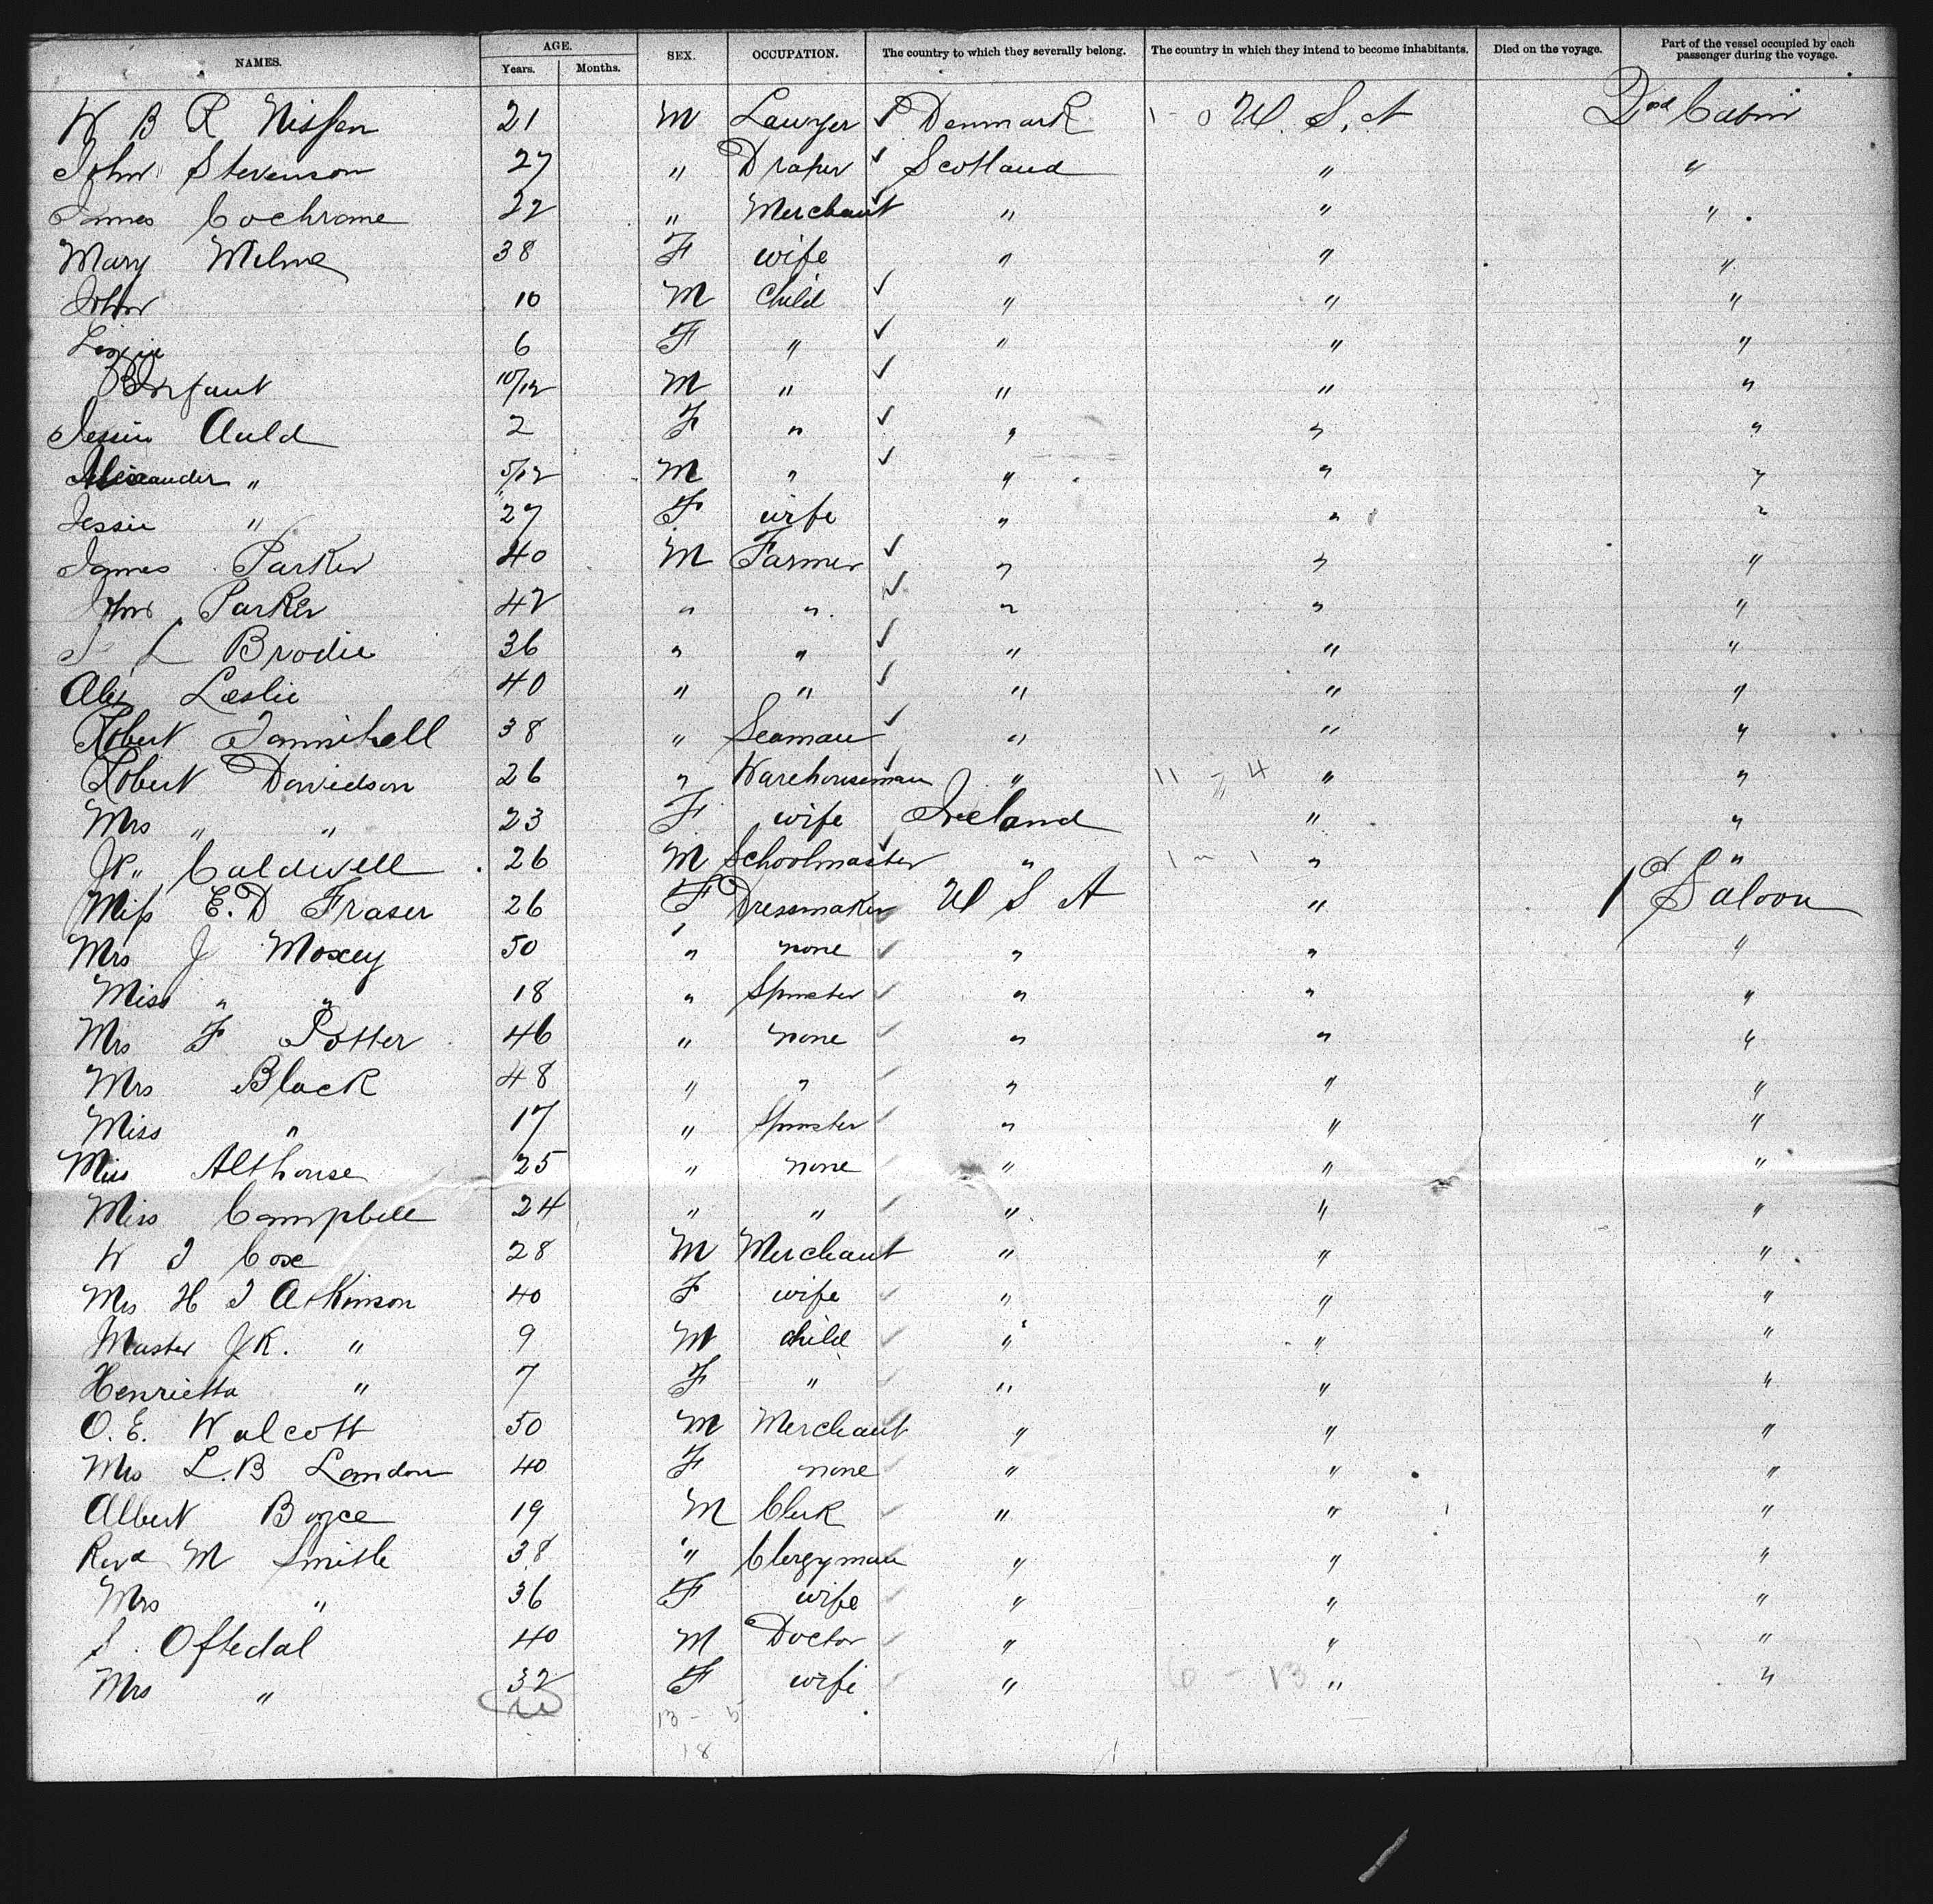 NAMES. AGE. Years. Months. SEX. OCCUPATION. The country to which they severally belong. The country in which they intend to become inhabitants. Died on the voyage. Part of the vessel occupied by each passenger during the voyage.
W B R Nissen 21 M Lawyer ✓ Denmark 1 - 0 U. S. A 2nd Cabin
John Stevenson 27 " Draper ✓ Scotland " "
James Cochrane 22 " Merchant ✓ " " "
Mary Milne 38 F wife " " "
John 10 M Child ✓ " " "
Lizzie 6 F " ✓ " " "
Infant 10/12 M " ✓ " " "
Jessie Auld 2 F " ✓ " " "
Alexander " 5/12 M " ✓ " " "
Jessie " 27 F wife " " "
James Parker 40 M Farmer ✓ " " "
John Parker 42 " " ✓ " " "
L Brodie 36 " " ✓ " " "
Alex Leslie 40 " " ✓ " " "
Robert Tannihall 38 " Seaman ✓ " " "
Robert Davidson 26 " Warehouseman ✓ " 11 - 4 " "
Mrs " " 23 F wife Ireland " "
Caldwell 26 M Schoolmaster ✓ " 1 - 1 " "
Miss E. D Fraser 26 F Dressmaker ✓ U S A " Saloon
Mrs J Moxey 50 " none ✓ " " "
Miss " " 18 " Spinster ✓ " " "
Mrs F Potter 46 " none ✓ " " "
Mrs Black 48 " " ✓ " " "
Miss " 17 " Spinster ✓ " " "
Miss Althouse 25 " none ✓ " " "
Miss Campbell 24 " " ✓ " " "
W J Cox 28 M Merchant ✓ " " "
Mrs H J Atkinson 40 F wife ✓ " " "
Master J K. " 9 M child ✓ " " "
Henrietta " 7 F " ✓ " " "
O. E. Walcott 50 M Merchant ✓ " " "
Mrs L. B Landon 40 F none ✓ " " "
Albert Boyce 19 M Clerk ✓ " " "
Revd M Smith 38 " Clergyman ✓ " " "
Mrs " 36 F wife ✓ " " "
S. Oftedal 40 M Doctor ✓ " " "
Mrs " 32 F wife ✓ " 6 - 13 " "
13 - 5
18